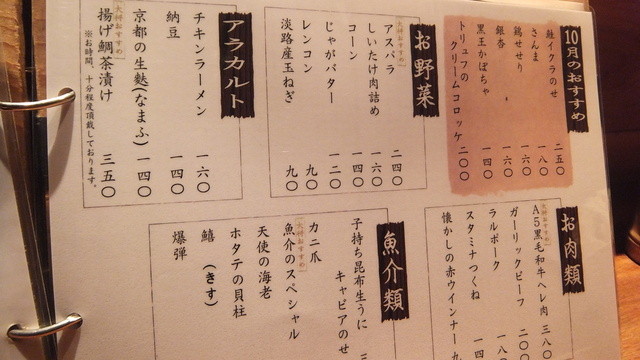 10月のおすすめ
鮭イクラのせ 二五〇
さんま 一八〇
鶏せせり 一六〇
銀杏 一六〇
黒王かぼちゃ 一四〇
トリュフの
クリームコロッケ 二〇〇
お野菜
大将おすすめ
アスパラ 二四〇
しいたけ肉詰め 一六〇
コーン 一四〇
じゃがバター 一二〇
レンコン 九〇
淡路産玉ねぎ 九〇
アラカルト
チキンラーメン 一六〇
納豆 一四〇
京都の生麩(なまふ) 一四〇
大将おすすめ
揚げ鯛茶漬け 三五〇
※お時間、十分程度頂戴しております。
お肉類
大将おすすめ
A5黒毛和牛ヘレ肉 三八〇
ガーリックビーフ 二〇〇
ラルポーク 一八
スタミナつくね 一四
懐かしの赤ウインナー 九
魚介類
子持ち昆布生うに
キャビアのせ 三
カニ爪
大将おすすめ
魚介のスペシャル
天使の海老
ホタテの貝柱
鱚(きす)
爆弾